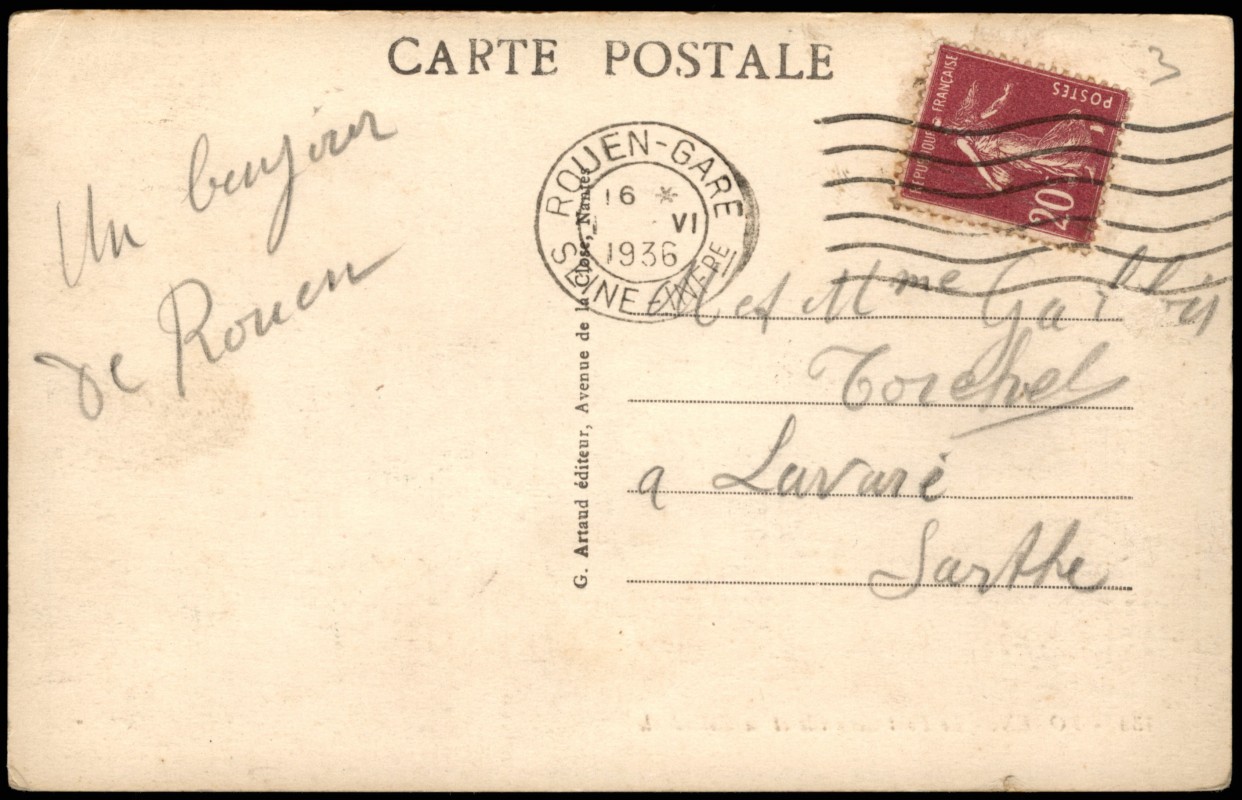 CARTE POSTALE
3
RÉPUBLIQUE FRANÇAISE
POSTES
20
ROUEN-GARE
16 * VI
1936
SEINE-INFRE
Un bonjour
de Rouen
M et Mme
Torchet
a Lavaré
Sarthe
G. Artaud éditeur, Avenue de la Close, Nantes